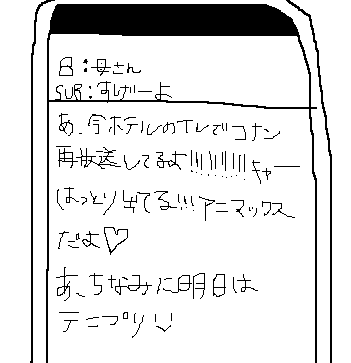 呂:母さん
SUB:すげーよ
あ、今ホテルのTVでコナン
再放送してるよ!!!!!!!!!キャー
はっとり出てる!!!アニマックス
だよ♡
あ、ちなみに明日は
テニプリ